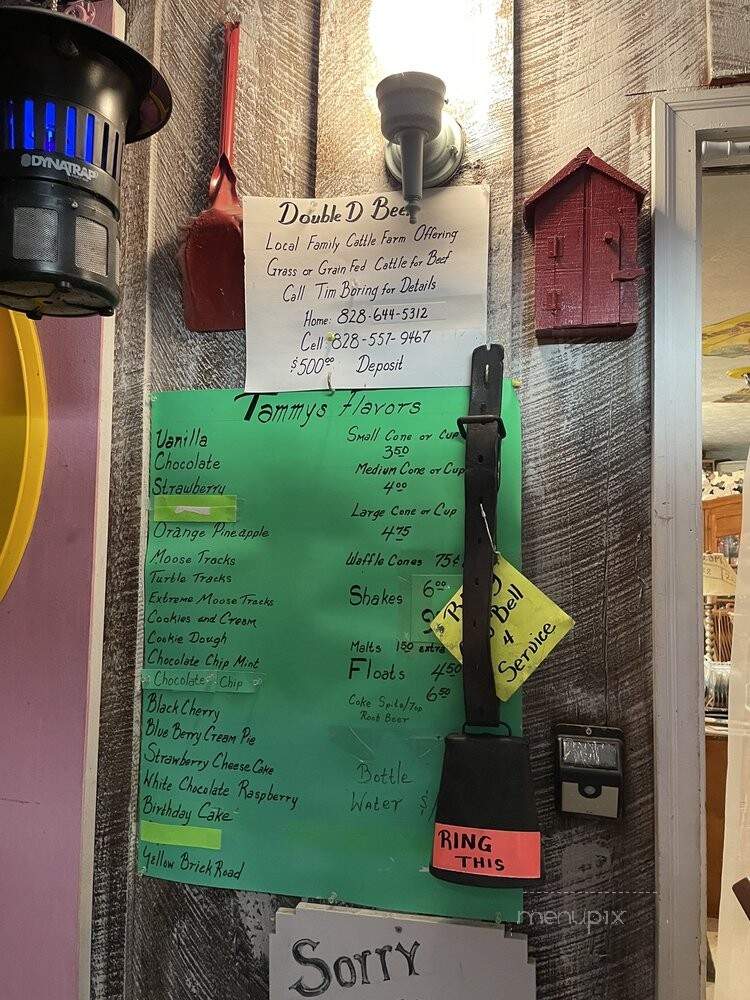 DYNATRAP
Double D
Local Family Cattle Farm Offering
Grass or Grain Fed Cattle for Beef
Call Tim Boring for Details
Home: 828-644-5312
Cell: 828-557-9467
$500.00 Deposit
Tammys Flavors
Vanilla
Chocolate
Strawberry
Orange Pineapple
Moose Tracks
Turtle Tracks
Extreme Moose Tracks
Cookies and Cream
Cookie Dough
Chocolate Chip Mint
Chocolate Chip
Black Cherry
Blue Berry Cream Pie
Strawberry Cheese Cake
White Chocolate Raspberry
Birthday Cake
Yellow Brick Road
Small Cone or Cup
3.50
Medium Cone or Cup
4.00
Large Cone or Cup
4.75
Waffle Cones 75¢
Shakes 6.00
Malts 1.50 extra
Floats 4.50
6.50
Coke Sprite/7up
Root Beer
Bottle
Water $
Bell
4
Service
RING
THIS
Sorry
menupix